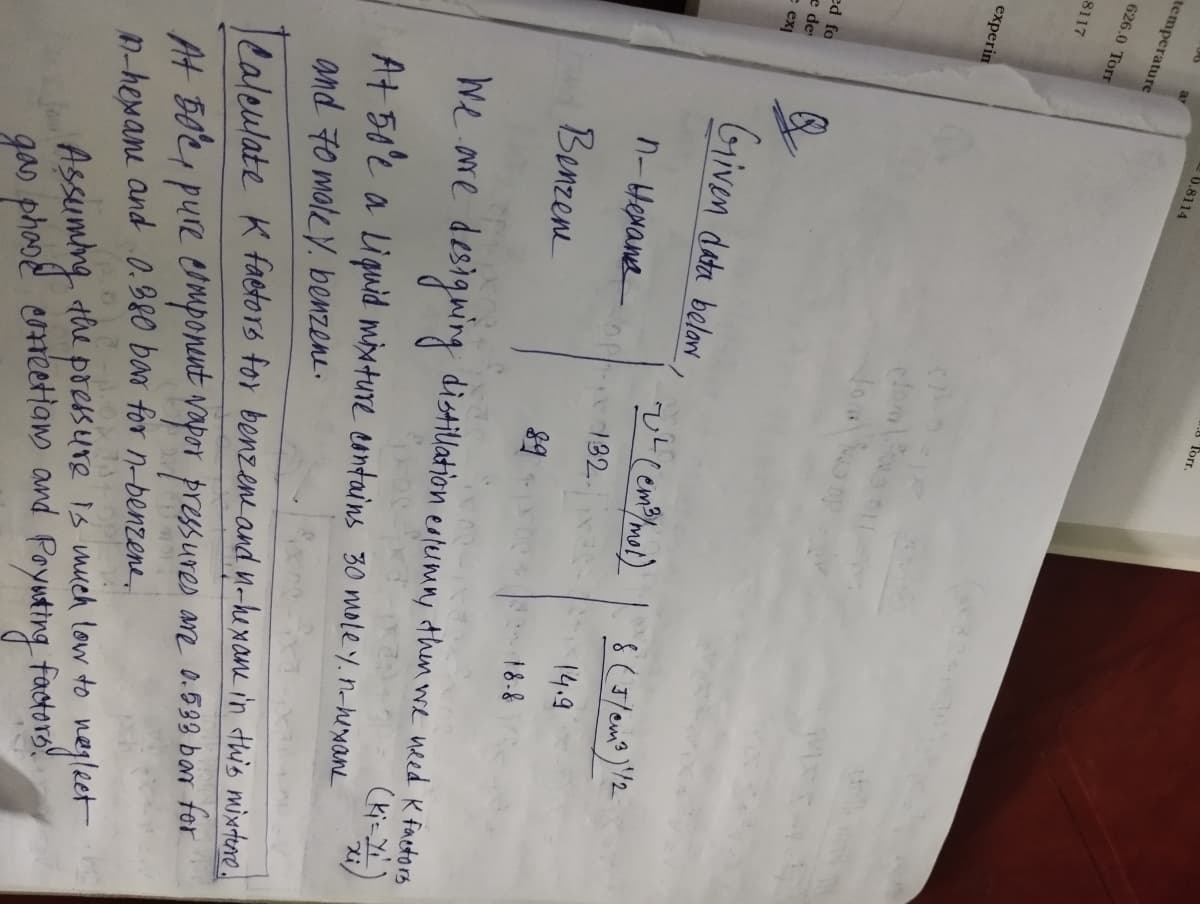 temperature
626.0 Torr
8117
experim
0.8114
Torr.
Q
Given data below,
vᴸ (cm³/mol) δ (J/cm³)^1/2
n-Hexane 132 14.9
Benzene 89 18.8
We are designing distillation column, then we need K factors
(Ki = yi/xi)
At 50°c a liquid mixture contains 30 mole % n-hexane
and 70 mole % benzene.
Calculate K factors for benzene and n-hexane in this mixture.
At 50°c, pure component vapor pressures are 0.533 bar for
n-hexane and 0.380 bar for n-benzene.
Assuming the pressure is much low to neglect
gas phase corrections and Poynting factors.